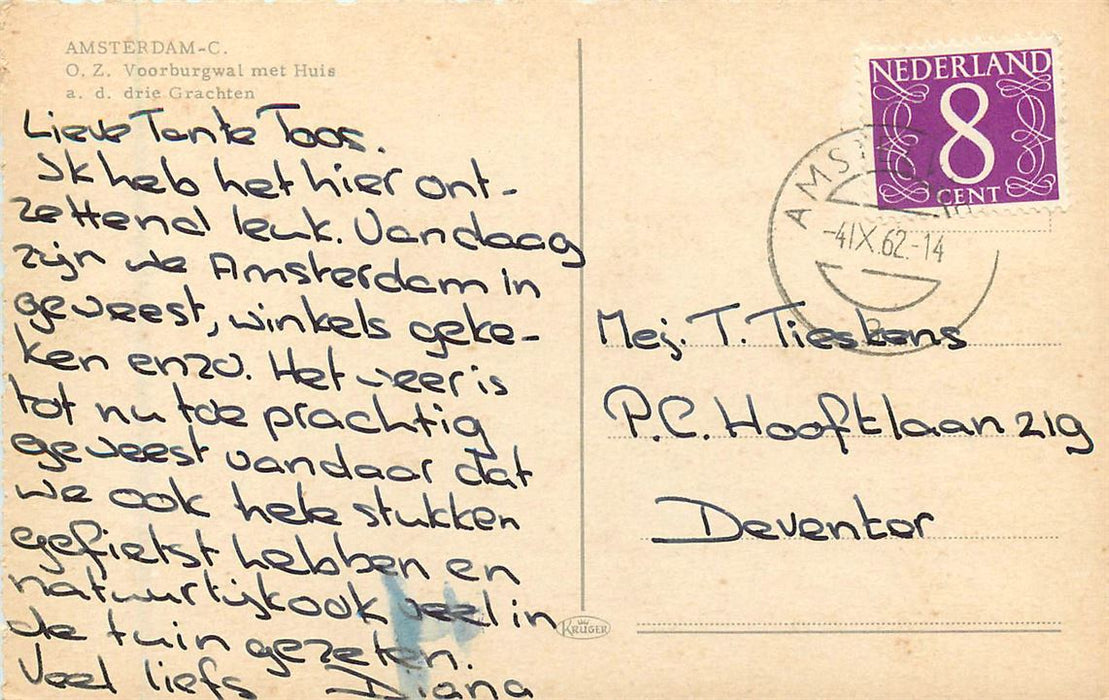 AMSTERDAM-C.
O. Z. Voorburgwal met Huis
a. d. drie Grachten
Lieve Tante Toos.
Ik heb het hier ont-
zettend leuk. Vandaag
zijn we Amsterdam in
geweest, winkels geke-
ken enzo. Het weer is
tot nu toe prachtig
geweest vandaar dat
we ook hele stukken
gefietst hebben en
natuurlijk ook veel in
de tuin gezeten.
Veel liefs Diana
KRÜGER
NEDERLAND
8
CENT
AMSTERDAM
-4IX.62.-14
Mej. T. Tieskens
P.C. Hooftlaan 219
Deventer